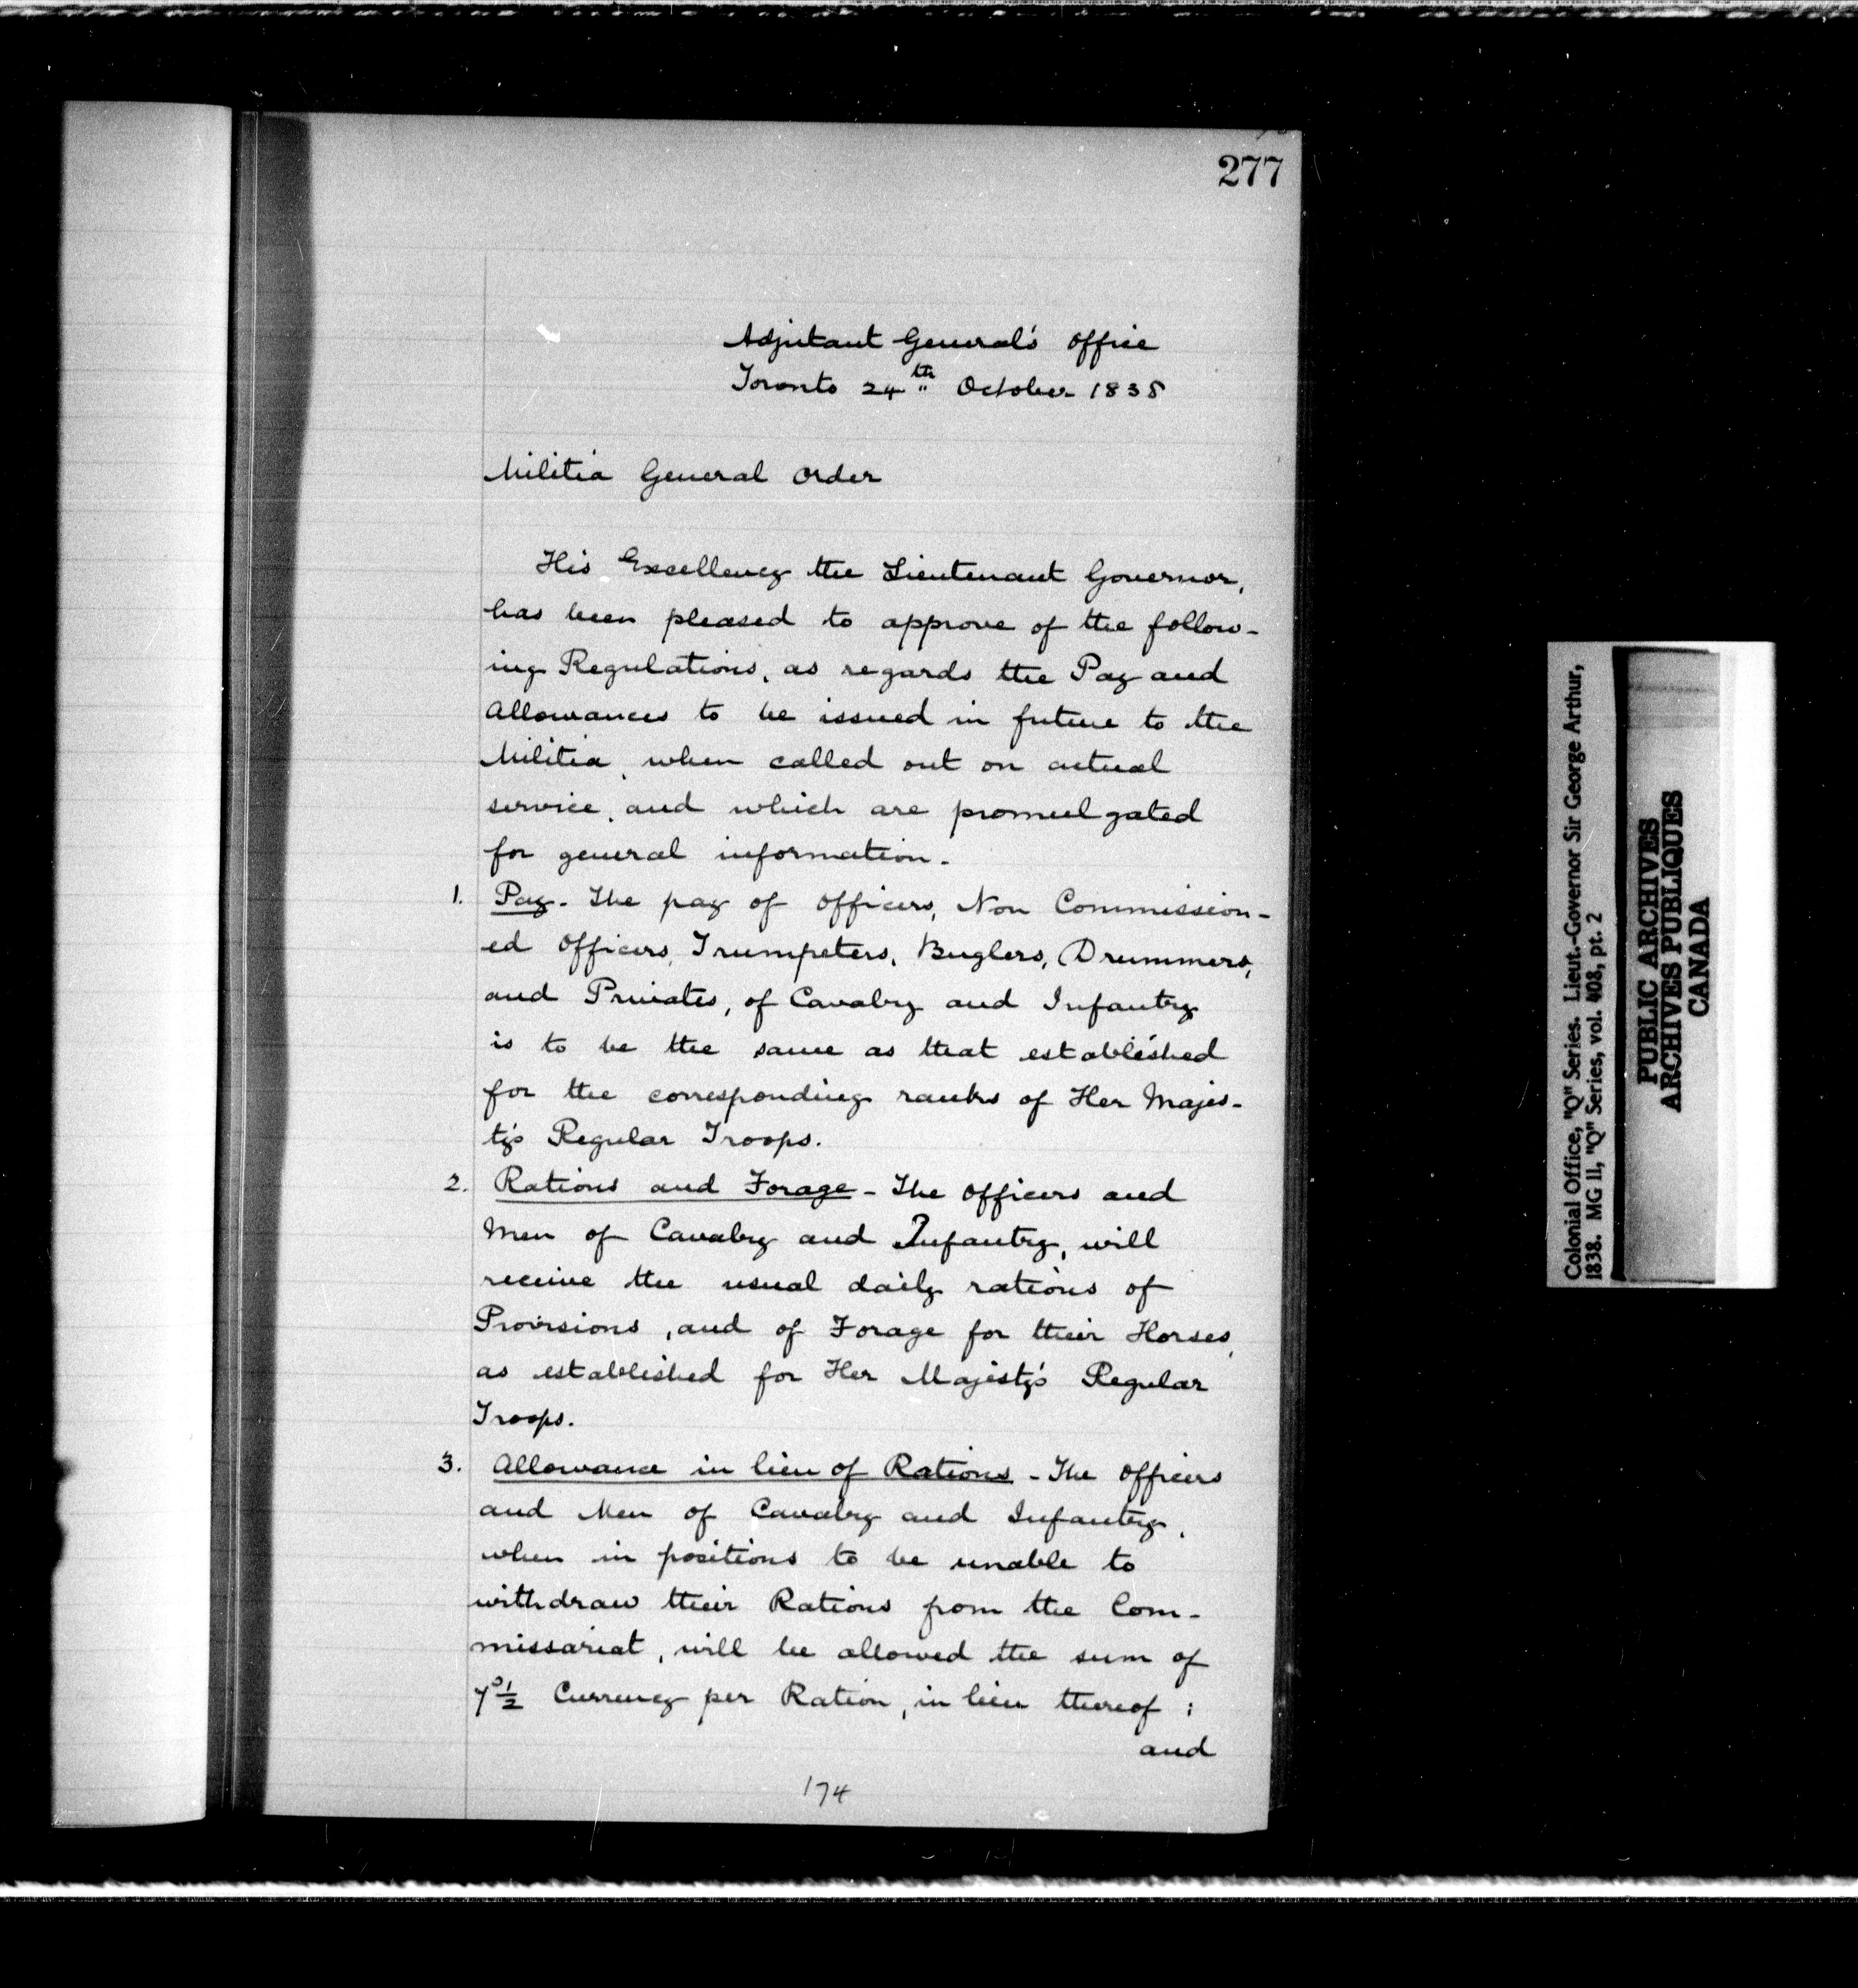 277
Adjutant General's Office
Toronto 24th October 1838
Militia General Order
His Excellency the Lieutenant Governor,
has been pleased to approve of the follow-
ing Regulations, as regards the Pay and
Allowances to be issued in future to the
Militia, when called out on actual
service, and which are promulgated
for general information.
1. Pay - The pay of Officers, Non Commission-
ed Officers, Trumpeters, Buglers, Drummers,
and Privates, of Cavalry and Infantry
is to be the same as that established
for the corresponding ranks of Her Majes-
ty's Regular Troops.
2. Rations and Forage - The Officers and
Men of Cavalry and Infantry, will
receive the usual daily rations of
Provisions, and of Forage for their Horses,
as established for Her Majesty's Regular
Troops.
3. Allowance in lieu of Rations - The Officers
and Men of Cavalry and Infantry,
when in positions to be unable to
withdraw their Rations from the Com-
missariat, will be allowed the sum of
7d½ Currency per Ration, in lieu thereof;
and
174
Colonial Office, "Q" Series. Lieut.-Governor Sir George Arthur,
1838. MG 11, "Q" Series, vol. 408, pt. 2
PUBLIC ARCHIVES
ARCHIVES PUBLIQUES
CANADA